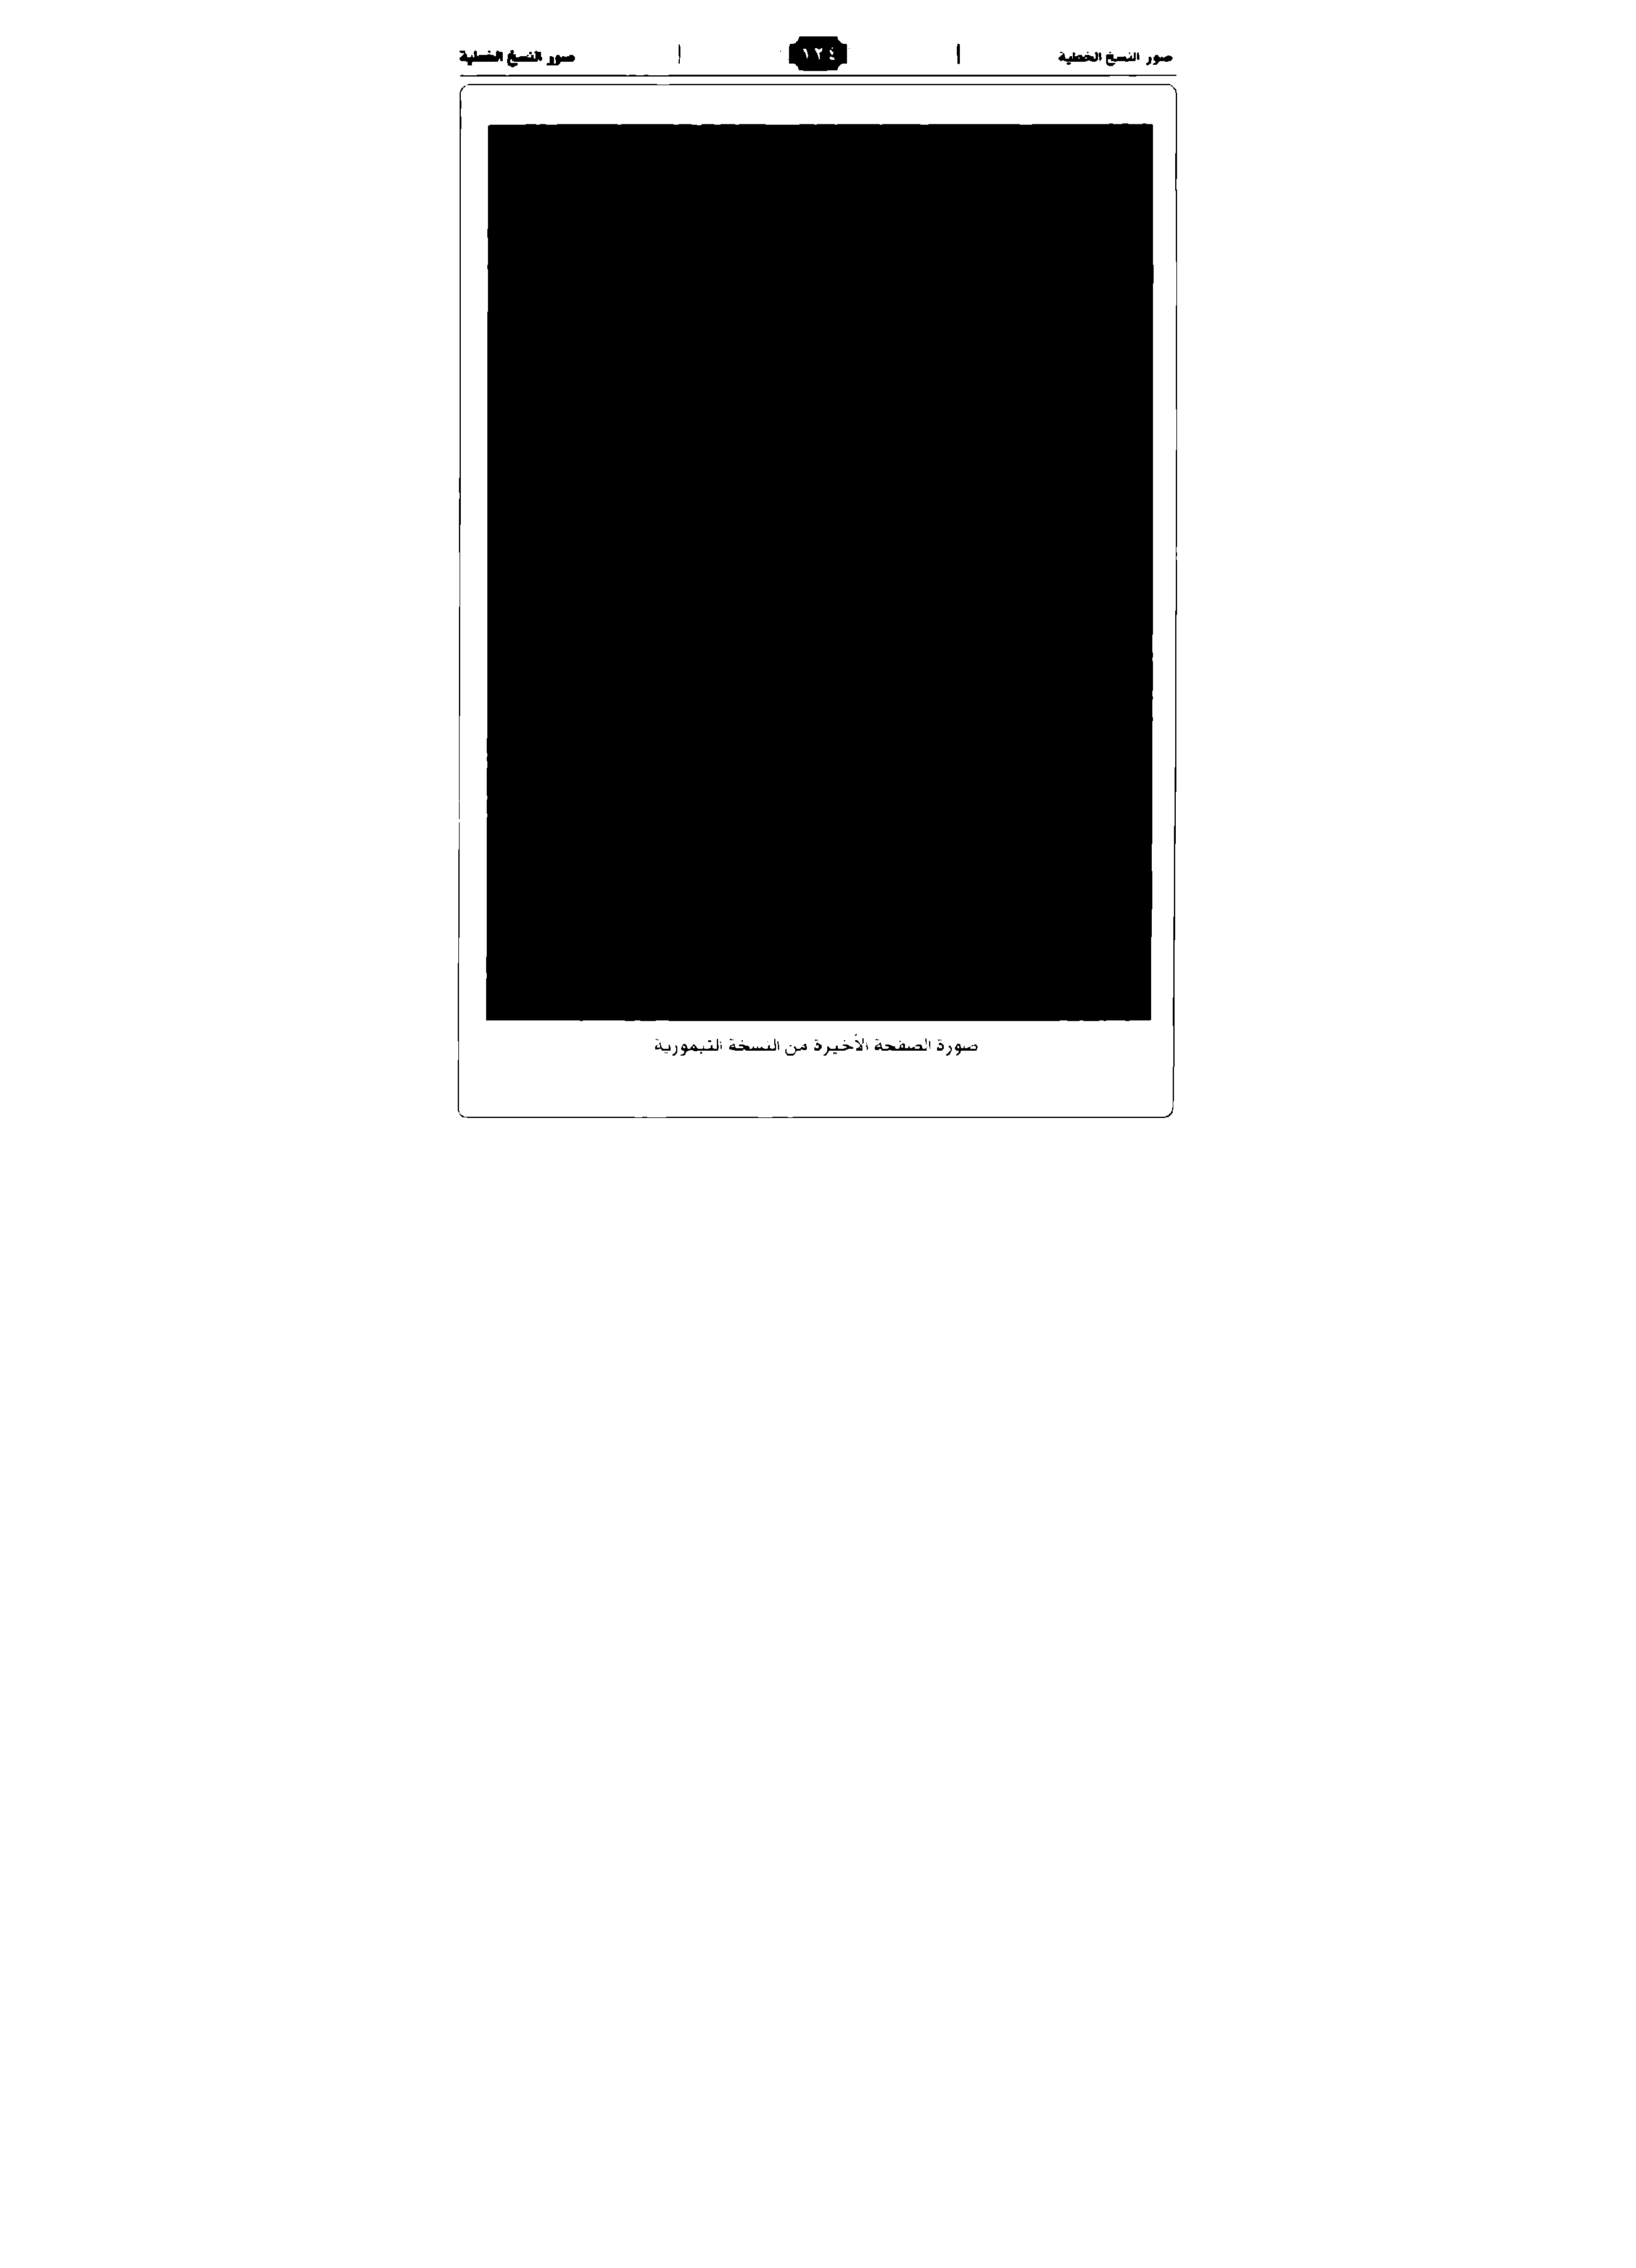 صور النسخ الخطية | ١٢٤ | صور النسخ الخطية
صورة الصفحة الأخيرة من النسخة التيمورية